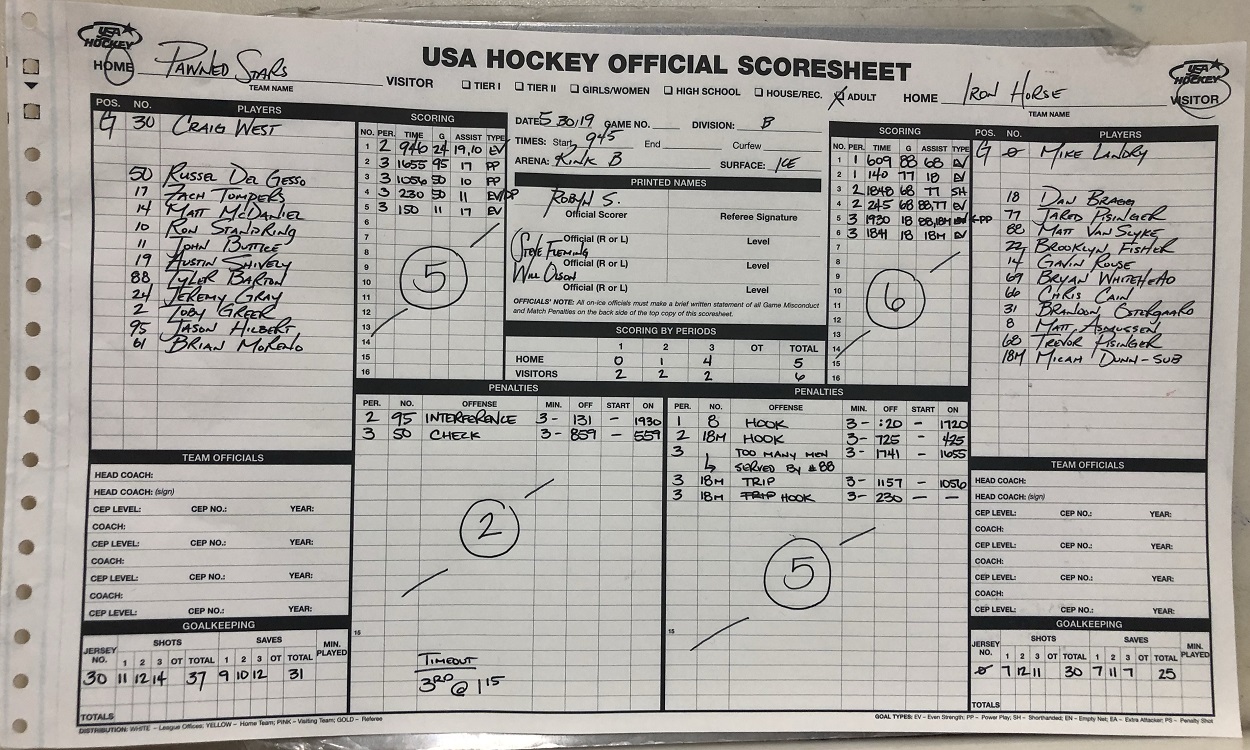 USA HOCKEY
USA HOCKEY OFFICIAL SCORESHEET
USA HOCKEY
HOME PAWNED STARS VISITOR
TEAM NAME
☐ TIER I ☐ TIER II ☐ GIRLS/WOMEN ☐ HIGH SCHOOL ☐ HOUSE/REC. ☒ ADULT
HOME IRON HORSE VISITOR
TEAM NAME
POS. NO. PLAYERS
G 30 CRAIG WEST
50 RUSSEL DEL GESSO
17 ZACH TOMPERS
14 MATT MCDANIEL
10 RON STANDRING
11 JOHN BUTTLE
19 AUSTIN SHIVELY
88 TYLER BARTON
24 JEREMY GRAY
2 TOBY GREER
95 JASON HILBERT
61 BRIAN MORENO
SCORING
NO. PER. TIME G ASSIST TYPE
1 2 946 24 19,10 EV
2 3 1655 95 17 PP
3 3 1056 50 10 PP
4 3 230 50 11 EV/PP
5 3 150 11 17 EV
6
7
8
9
10
11
12
13
14
15
16
5
DATE 5 30/19 GAME NO. DIVISION: B
TIMES: Start 945 End Curfew
ARENA: RINK B SURFACE: ICE
PRINTED NAMES
ROBYN S.
Official Scorer Referee Signature
Official (R or L) Level
STEVE FLEMING
Official (R or L) Level
WILL OLSON
Official (R or L) Level
OFFICIALS' NOTE: All on-ice officials must make a brief written statement of all Game Misconduct
and Match Penalties on the back side of the top copy of this scoresheet.
SCORING BY PERIODS
1 2 3 OT TOTAL
HOME 0 1 4 5
VISITORS 2 2 2 6
SCORING
NO. PER. TIME G ASSIST TYPE
1 1 609 88 68 EV
2 1 140 77 18 EV
3 2 1848 68 77 SH
4 2 245 68 88,77 EV
5 3 1930 18 88,18M EV ←PP
6 3 1841 18 18M EV
7
8
9
10
11
12
13
14
15
16
6
POS. NO. PLAYERS
G 0 MIKE LANDRY
18 DAN BRAGG
77 JARED PISINGER
88 MATT VAN SLYKE
22 BROOKLYN FISHER
14 GAVIN ROUSE
69 BRYAN WHITEHEAD
66 CHRIS CAIN
31 BRANDON OSTERGAARD
8 MATT ASMUSSEN
68 TREVOR PISINGER
18M MICAH DUNN-SUB
PENALTIES
PER. NO. OFFENSE MIN. OFF START ON
2 95 INTERFERENCE 3- 131 - 1930
3 50 CHECK 3- 859 - 559
2
15
TIMEOUT
3RD @ 115
PENALTIES
PER. NO. OFFENSE MIN. OFF START ON
1 8 HOOK 3- :20 - 1720
2 18M HOOK 3- 725 - 425
3 TOO MANY MEN 3- 1741 - 1655
↳ SERVED BY #88
3 18M TRIP 3- 1157 - 1056
3 18M TRIP HOOK 3- 230 - -
5
15
TEAM OFFICIALS
HEAD COACH:
HEAD COACH: (sign)
CEP LEVEL: CEP NO.: YEAR:
COACH:
CEP LEVEL: CEP NO.: YEAR:
COACH:
CEP LEVEL: CEP NO.: YEAR:
COACH:
CEP LEVEL: CEP NO.: YEAR:
GOALKEEPING
JERSEY NO. SHOTS SAVES MIN. PLAYED
1 2 3 OT TOTAL 1 2 3 OT TOTAL
30 11 12 14 37 9 10 12 31
TOTALS
TEAM OFFICIALS
HEAD COACH:
HEAD COACH: (sign)
CEP LEVEL: CEP NO.: YEAR:
COACH:
CEP LEVEL: CEP NO.: YEAR:
COACH:
CEP LEVEL: CEP NO.: YEAR:
COACH:
CEP LEVEL: CEP NO.: YEAR:
GOALKEEPING
JERSEY NO. SHOTS SAVES MIN. PLAYED
1 2 3 OT TOTAL 1 2 3 OT TOTAL
0 7 12 11 30 7 11 7 25
TOTALS
DISTRIBUTION: WHITE – League Offices; YELLOW – Home Team; PINK – Visiting Team; GOLD – Referee
GOAL TYPES: EV – Even Strength; PP – Power Play; SH – Shorthanded; EN – Empty Net; EA – Extra Attacker; PS – Penalty Shot